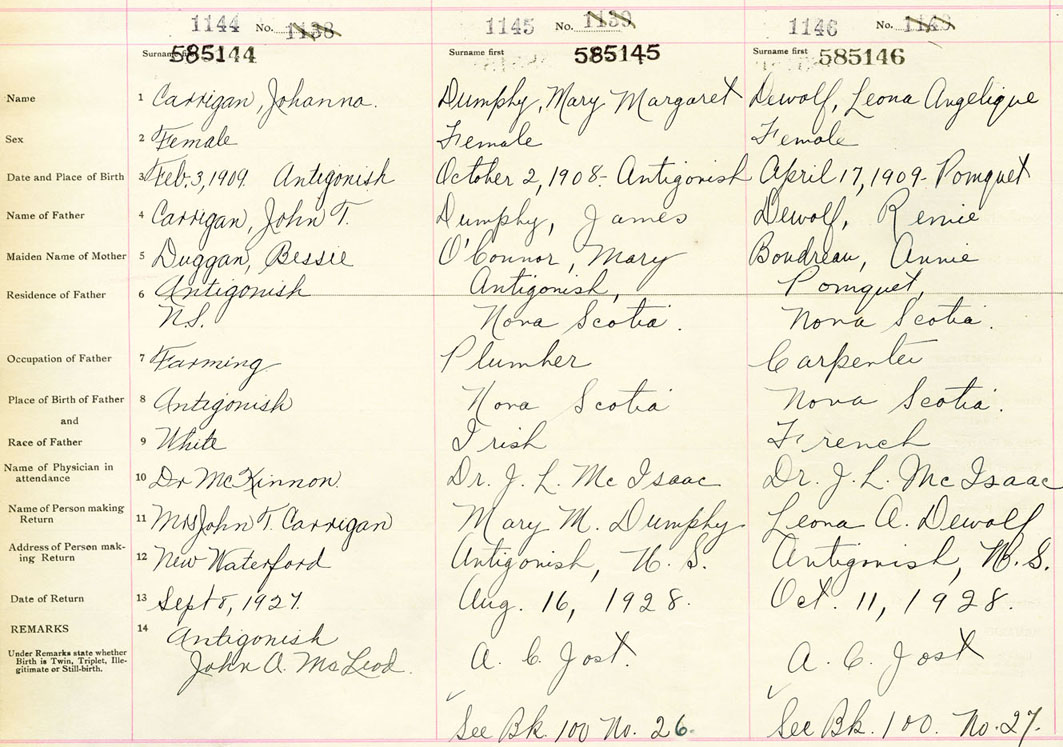 1144 No. 1138 1145 No. 1139 1146 No. 1140
Surname first 585144 Surname first 585145 Surname first 585146
Name 1 Carrigan, Johanna. Dumphy, Mary Margaret Dewolf, Leona Angelique
Sex 2 Female Female Female
Date and Place of Birth 3 Feb. 3, 1909. Antigonish October 2, 1908- Antigonish April 17, 1909- Pomquet
Name of Father 4 Carrigan, John T. Dumphy, James Dewolf, Remie
Maiden Name of Mother 5 Duggan, Bessie O'Connor, Mary Boudreau, Annie
Residence of Father 6 Antigonish Antigonish, Pomquet,
N.S. Nova Scotia. Nova Scotia.
Occupation of Father 7 Farming Plumber Carpenter
Place of Birth of Father 8 Antigonish Nova Scotia Nova Scotia.
and
Race of Father 9 White Irish French
Name of Physician in
attendance 10 Dr McKinnon. Dr. J. L. Mc Isaac Dr. J. L. Mc Isaac
Name of Person making
Return 11 Mrs John T. Carrigan Mary M. Dumphy. Leona A. Dewolf
Address of Person mak-
ing Return 12 New Waterford Antigonish, N. S. Antigonish, N. S.
Date of Return 13 Sept 8, 1927. Aug. 16, 1928. Oct. 11, 1928.
REMARKS 14 Antigonish
Under Remarks state whether
Birth is Twin, Triplet, Ille-
gitimate or Still-birth. John A. McLeod. A. C. Jost. A. C. Jost
See Bk. 100 No. 26. See Bk. 100. No. 27.